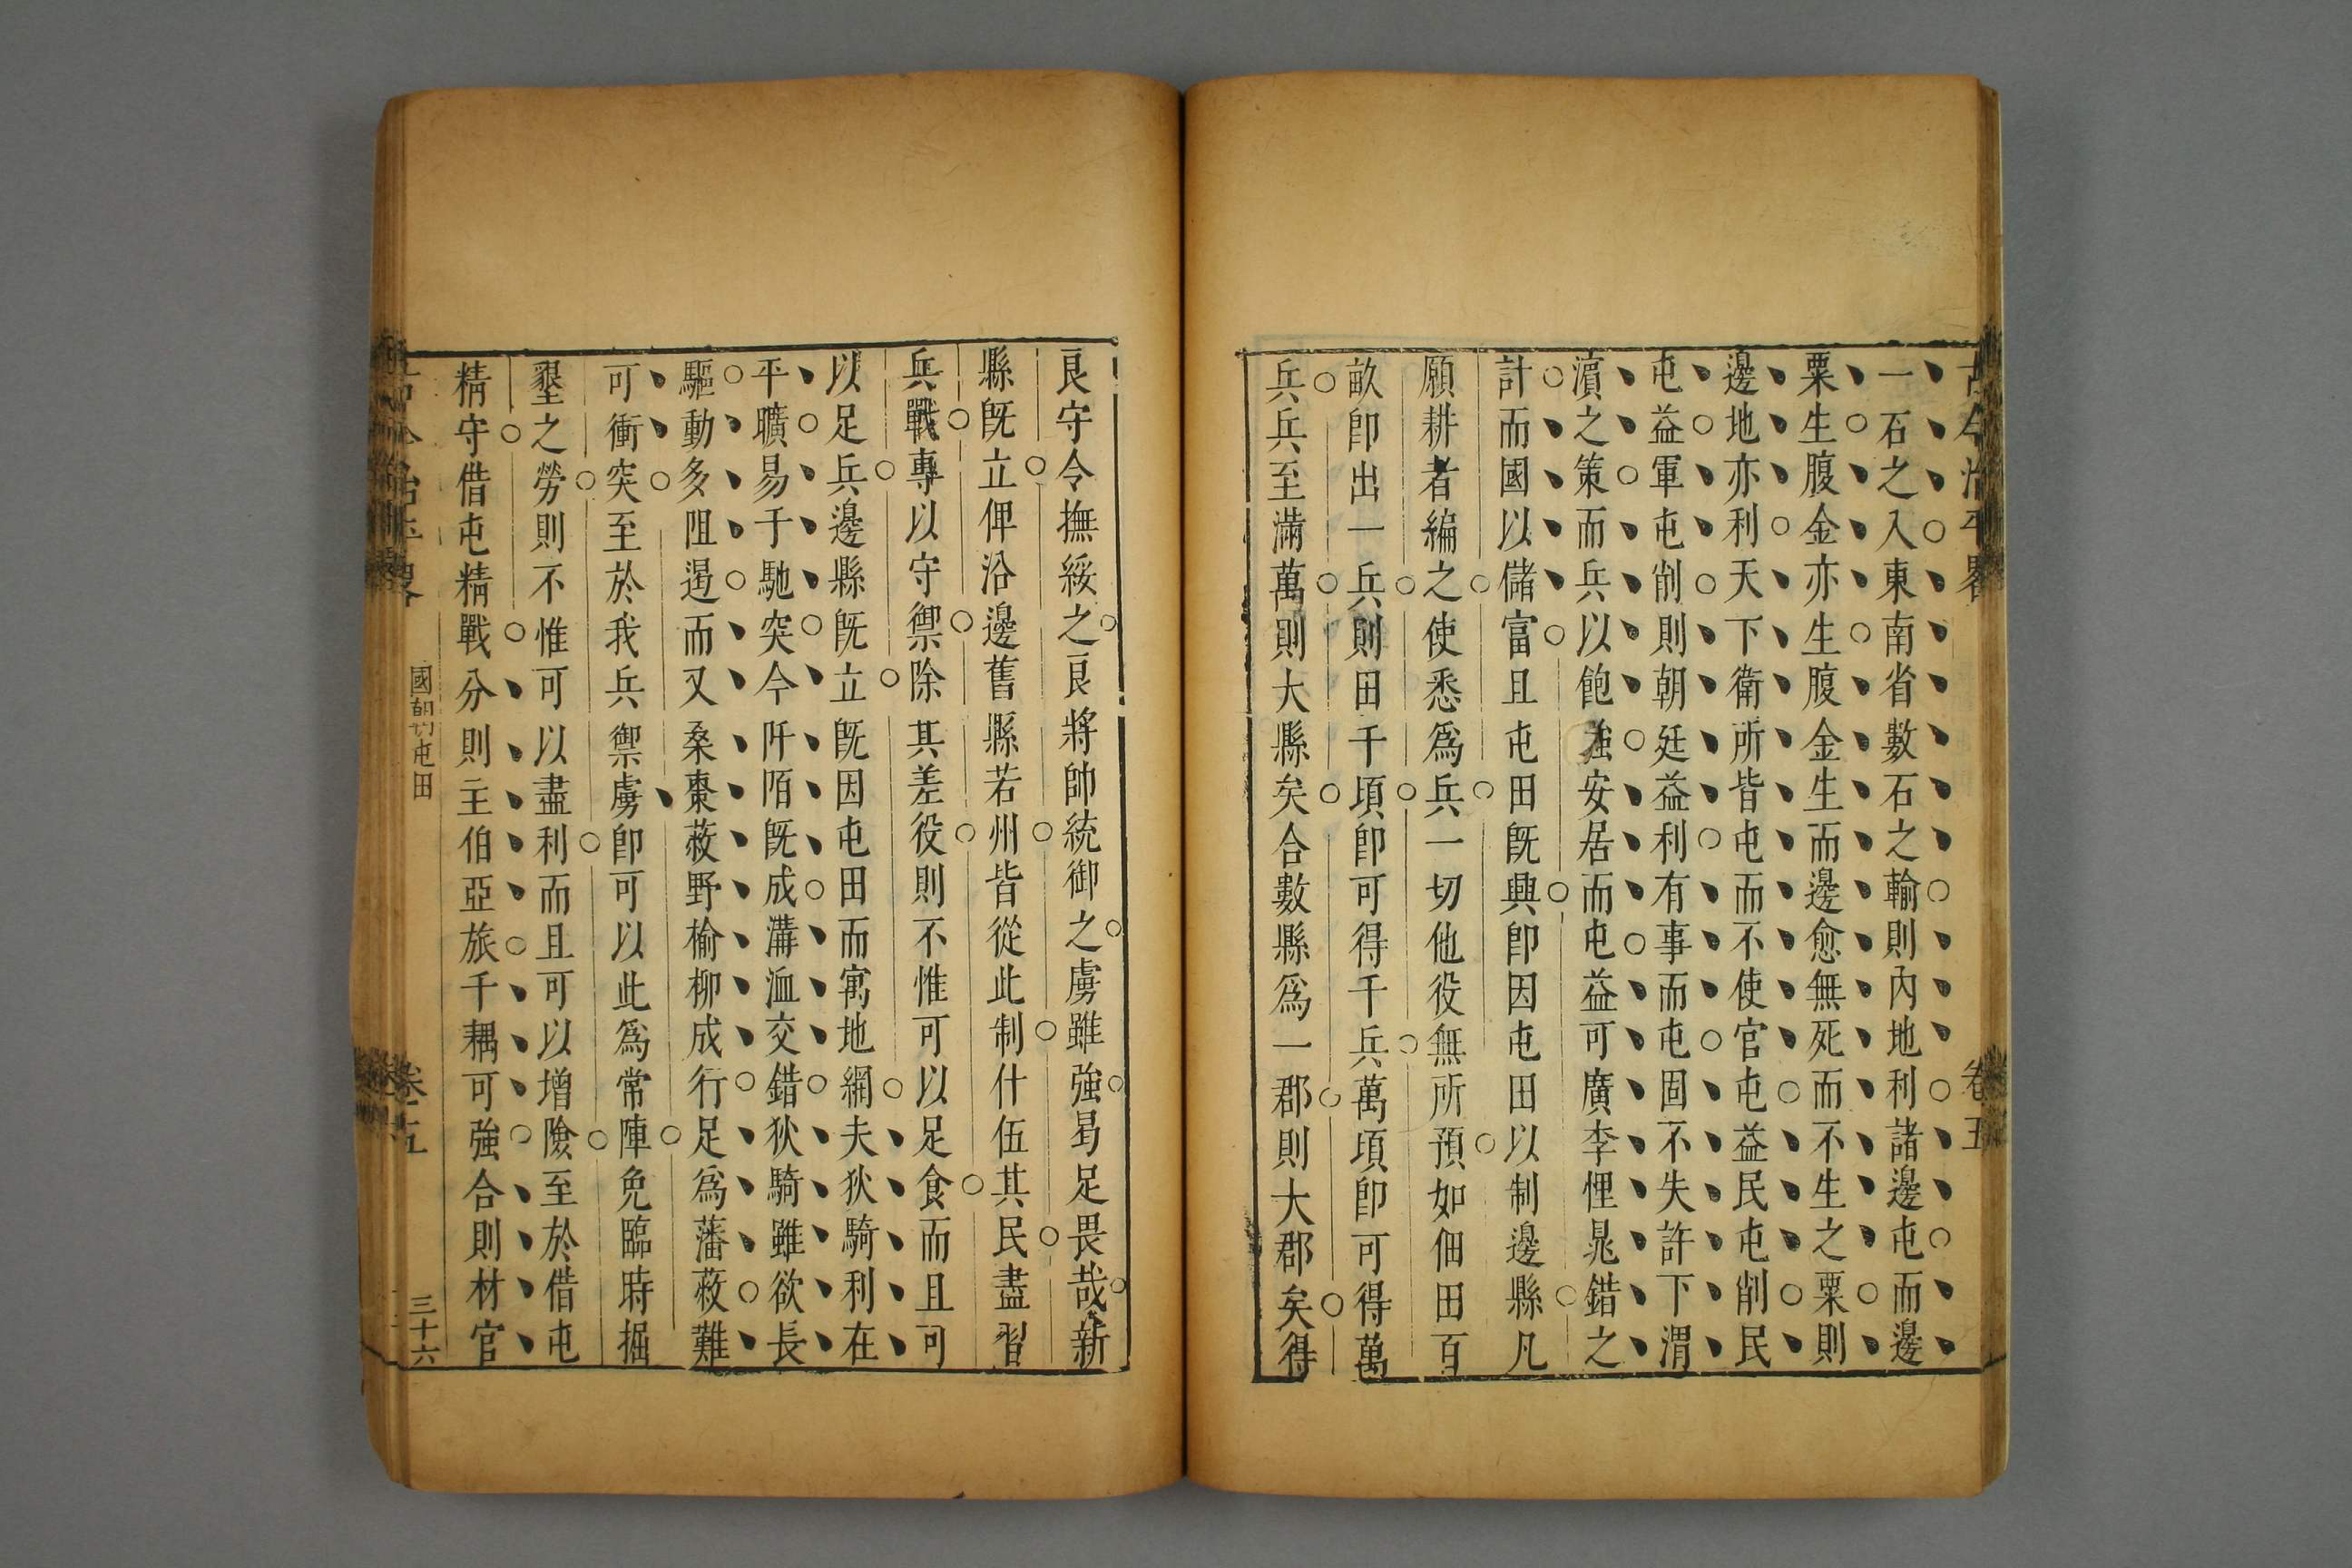 古今治平畧
卷五
一石之入東南省數石之輸則內地利諸邊屯而邊
粟生腹金亦生腹金生而邊愈無死而不生之粟則
邊地亦利天下衛所皆屯而不使官屯益民屯削民
屯益軍屯削則朝廷益利有事而屯固不失許下渭
濵之策而兵以飽強安居而屯益可廣李悝晁錯之
計而國以儲富且屯田旣興卽因屯田以制邊縣凡
願耕者編之使悉爲兵一切他役無所預如佃田百
畝卽出一兵則田千頃卽可得千兵萬頃卽可得萬
兵兵至滿萬則大縣矣合數縣爲一郡則大郡矣得
良守令撫綏之良將帥統御之虜雖強曷足畏哉新
縣旣立俾沿邊舊縣若州皆從此制什伍其民盡習
兵戰專以守禦除其差役則不惟可以足食而且可
以足兵邊縣旣立旣因屯田而寓地網夫狄騎利在
平曠易于馳突今阡陌旣成溝洫交錯狄騎雖欲長
驅動多阻遏而又桑棗蔽野榆柳成行足爲藩蔽難
可衝突至於我兵禦虜卽可以此爲常陣免臨時掘
壍之勞則不惟可以盡利而且可以增險至於借屯
精守借屯精戰分則主伯亞旅千耦可強合則材官
古今治平畧
國朝屯田
卷五
三十六